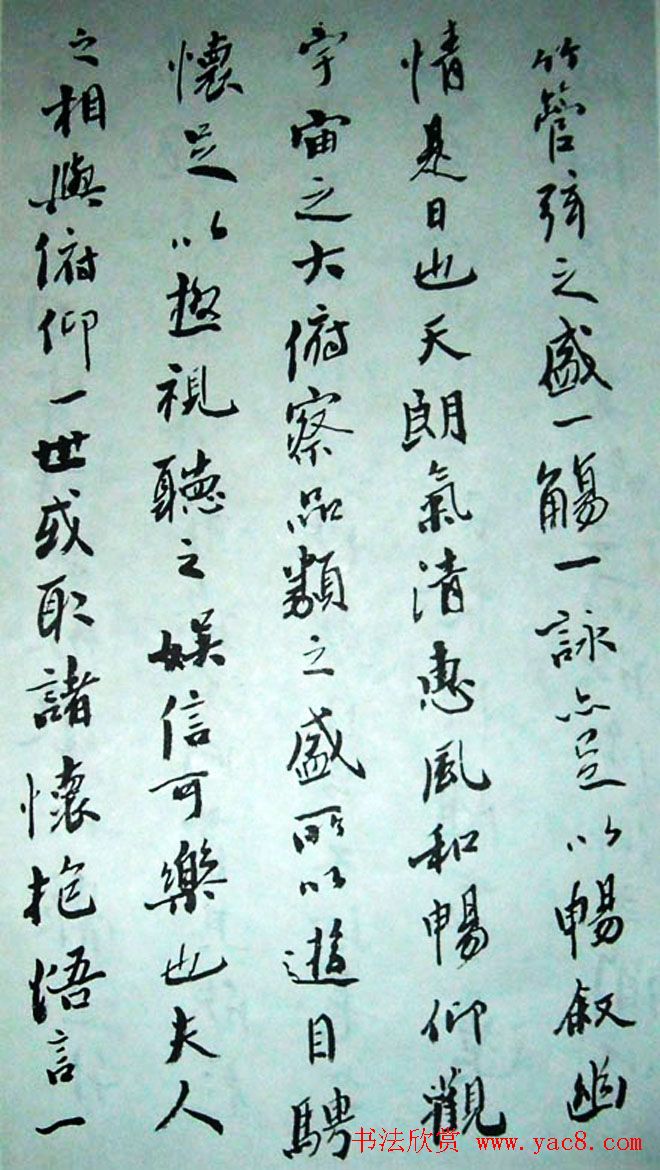 竹管弦之盛一觴一詠亦足以暢叙幽
情是日也天朗氣清惠風和暢仰觀
宇宙之大俯察品類之盛所以遊目騁
懷足以極視聽之娱信可樂也夫人
之相與俯仰一世或取諸懷抱悟言一
书法欣赏 www.yac8.com